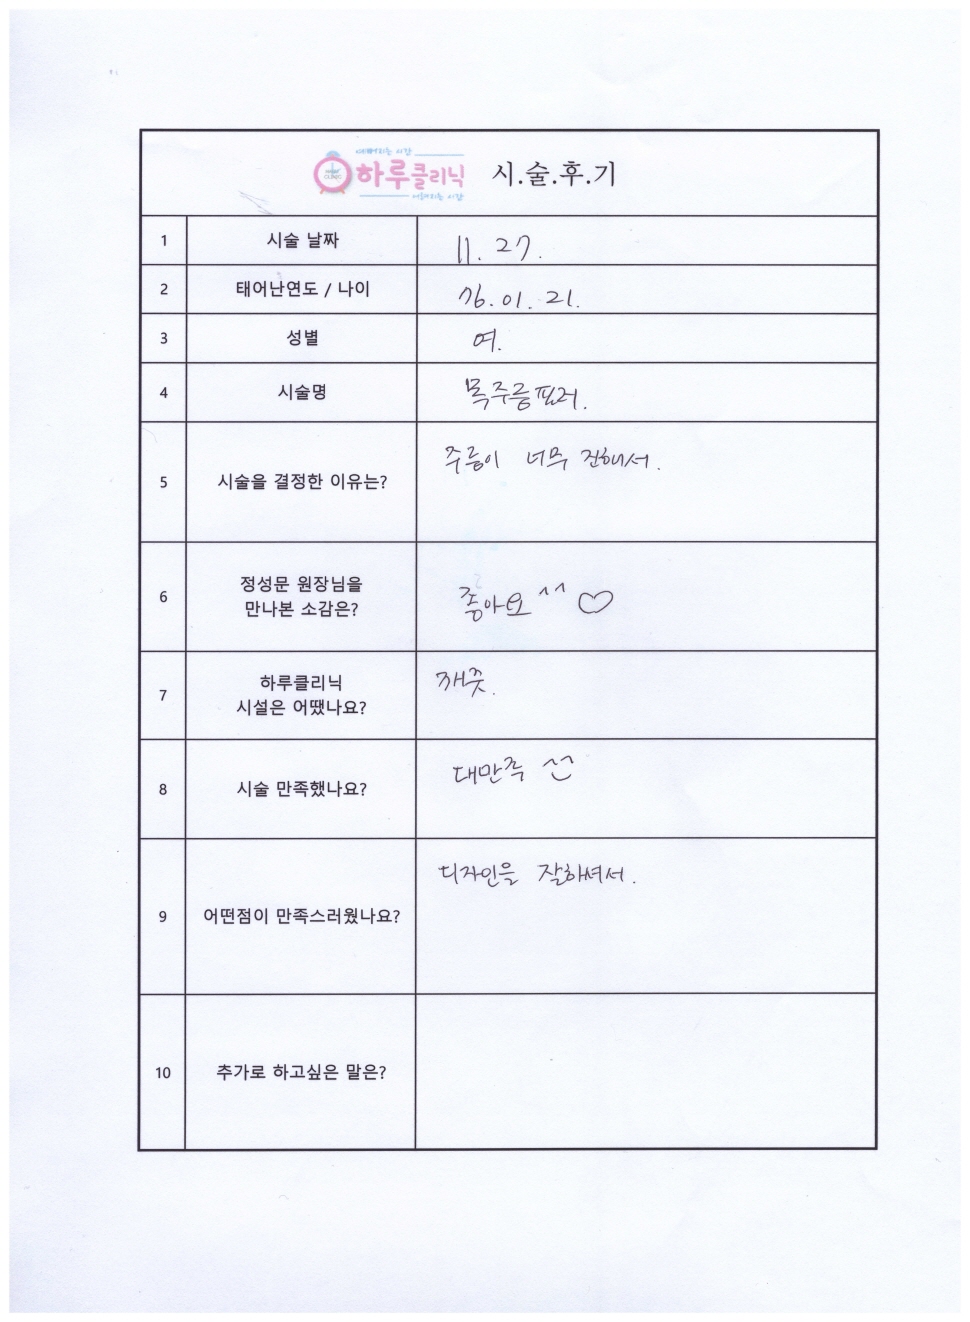 예뻐지는 시간
하루클리닉 시.술.후.기
어려지는 시간
1 시술 날짜 11. 27.
2 태어난연도 / 나이 76. 01. 21.
3 성별 여.
4 시술명 목주름필러.
5 시술을 결정한 이유는? 주름이 너무 진해서.
6 정성문 원장님을
만나본 소감은? 좋아요 ^^ ♡
7 하루클리닉
시설은 어땠나요? 깨끗.
8 시술 만족했나요? 대만족 ^^
9 어떤점이 만족스러웠나요? 디자인을 잘하셔서.
10 추가로 하고싶은 말은?